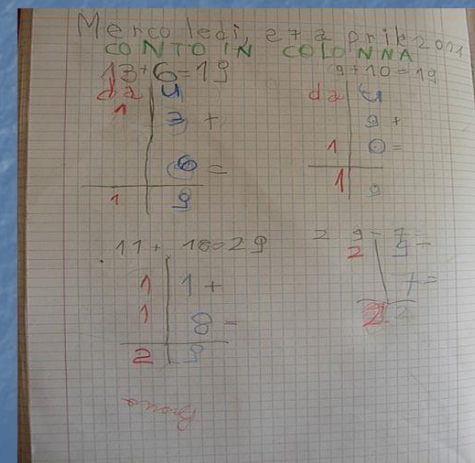 Mercoledi, 27 aprile 2011
CONTO IN COLONNA
13+6=19
da u
1 3 +
6 =
1 9
9+10=19
da u
9 +
1 0 =
1 9
11+18=29
1 1 +
1 8 =
2 9
29-7=
2 9 -
7 =
2 2
Brava